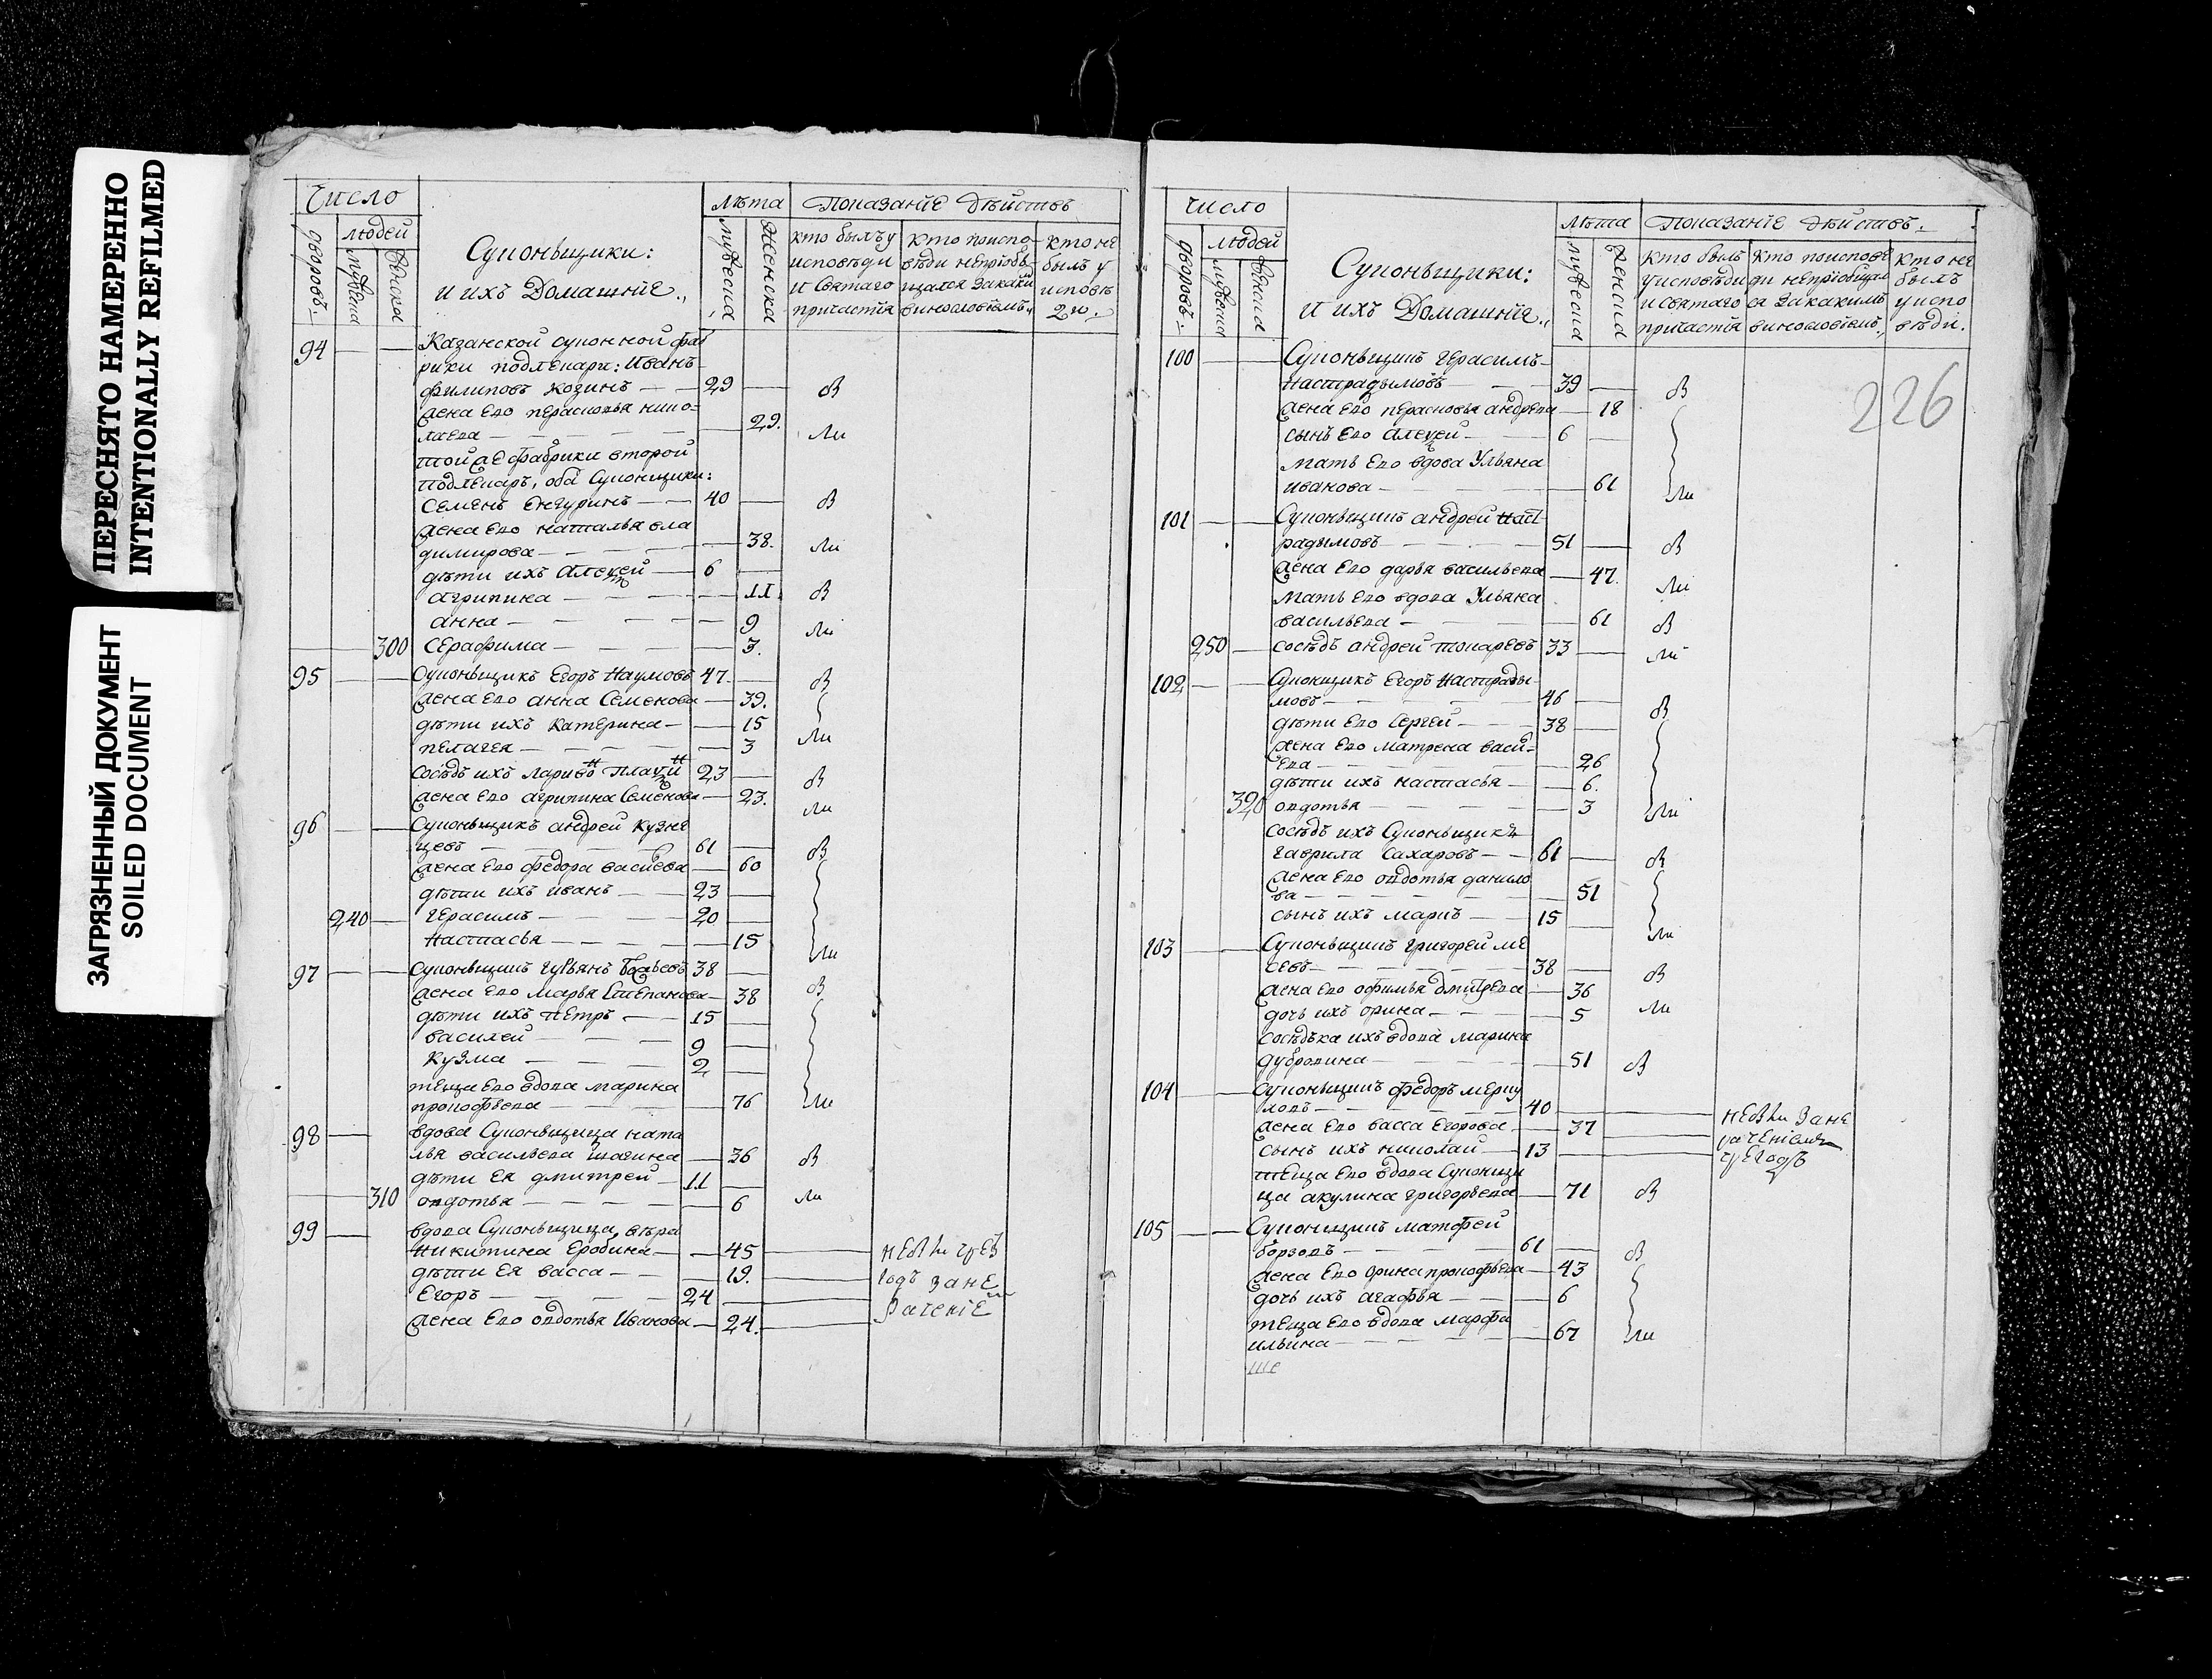 ПЕРЕСНЯТО НАМЕРЕННО
INTENTIONALLY REFILMED
ЗАГРЯЗНЕННЫЙ ДОКУМЕНТ
SOILED DOCUMENT
Число
лѣта Показанїе дѣйствъ
людей
дворовъ. мужеска женска
Суконьщики:
и ихъ Домашнїе.,
мужеска женска
кто былъ у исповѣди и святаго причастїя
кто по исповѣди не прїобщался за какимъ винословїемъ.,
кто не былъ у исповѣди.
94 Казанской суконной фаб
рики подлекарь: Иванъ
филиповъ козинъ 29 В
жена Его парасковья нико=
лаева 29. ли
той же фабрики второй
подлекарь, оба Суконщики:
Семенъ 40 В
жена Его наталья вла
димирова 38. ли
дѣти ихъ Алексей 6
агрипина 11. В
анна 9 ли
300 Серафима 3.
95 Суконьщикъ Егоръ Наумовъ 47. В
жена Его анна Семенова 39.
дѣти ихъ Катерина 15
пелагея 3 ли
сосѣдъ ихъ 23 В
жена Его агрипина Семенова 23. ли
96 Суконьщикъ андрей Кузне
цовъ 61 В
жена Его федора васильева 60
дѣти ихъ иванъ 23
240 герасимъ 20
Настасья 15 ли
97 Суконьщикъ гурьянъ 38
жена Его Марья Степанова 38 В
дѣти ихъ Петръ 15
василей 9
Кузма 2
теща Его вдова марина
прокофьева 76 ли
98 вдова Суконьщица ната
лья васильева 36 В
дѣти Ея дмитрей 11
310 овдотья 6 ли
99 вдова Суконьщица вѣра
Никитина Еробина 45
дѣти Ея васса 19.
Егоръ 24
жена Его овдотья Иванова 24.
годъ зане
раченїе
Число
лѣта Показанїе дѣйствъ.
людей
дворовъ. мужеска женска
Суконьщики:
и ихъ Домашнїе.,
мужеска женска
кто былъ у исповѣди и святаго причастїя
кто по исповѣди не прїобщался за какимъ винословїемъ.,
кто не былъ у исповѣди.
226
100 Суконьщикъ герасимъ
Настрадымовъ 39 В
жена Его парасковья андреева 18
сынъ Его Алексей 6
мать Его вдова Ульяна
иванова 61 ли
101 Суконьщикъ андрей Наст
радымовъ 51 В
жена Его дарья васильева 47. ли
мать Его вдова Ульяна
васильева 61 В
250 сосѣдъ андрей токаревъ 33 ли
102 Суконщикъ Егоръ Настрады
мовъ 46 В
дѣти Его Сергей 38
жена Его матрена василь
ева 26
дѣти ихъ настасья 6.
320 овдотья 3 ли
сосѣдъ ихъ Суконьщикъ
гаврила Сахаровъ 61 В
жена Его овдотья данило
ва 51
сынъ ихъ маркъ 15 ли
103 Суконьщикъ григорей ме
38 В
жена Его офимья дмитрева 36
дочь ихъ орина 5 ли
сосѣдка ихъ вдова марина
дубровина 51 В
104 Суконьщикъ федоръ мерку
ловъ 40
жена Его васса Егорова 37
сынъ ихъ николай 13
теща Его вдова Суконщи
ца акулина григорьева 71 В
105 Суконщикъ матфей
борзовъ 61 В
жена Его орина прокофьева 43
дочь ихъ агафья 6
теща Его вдова марфа
ильина 67 ли